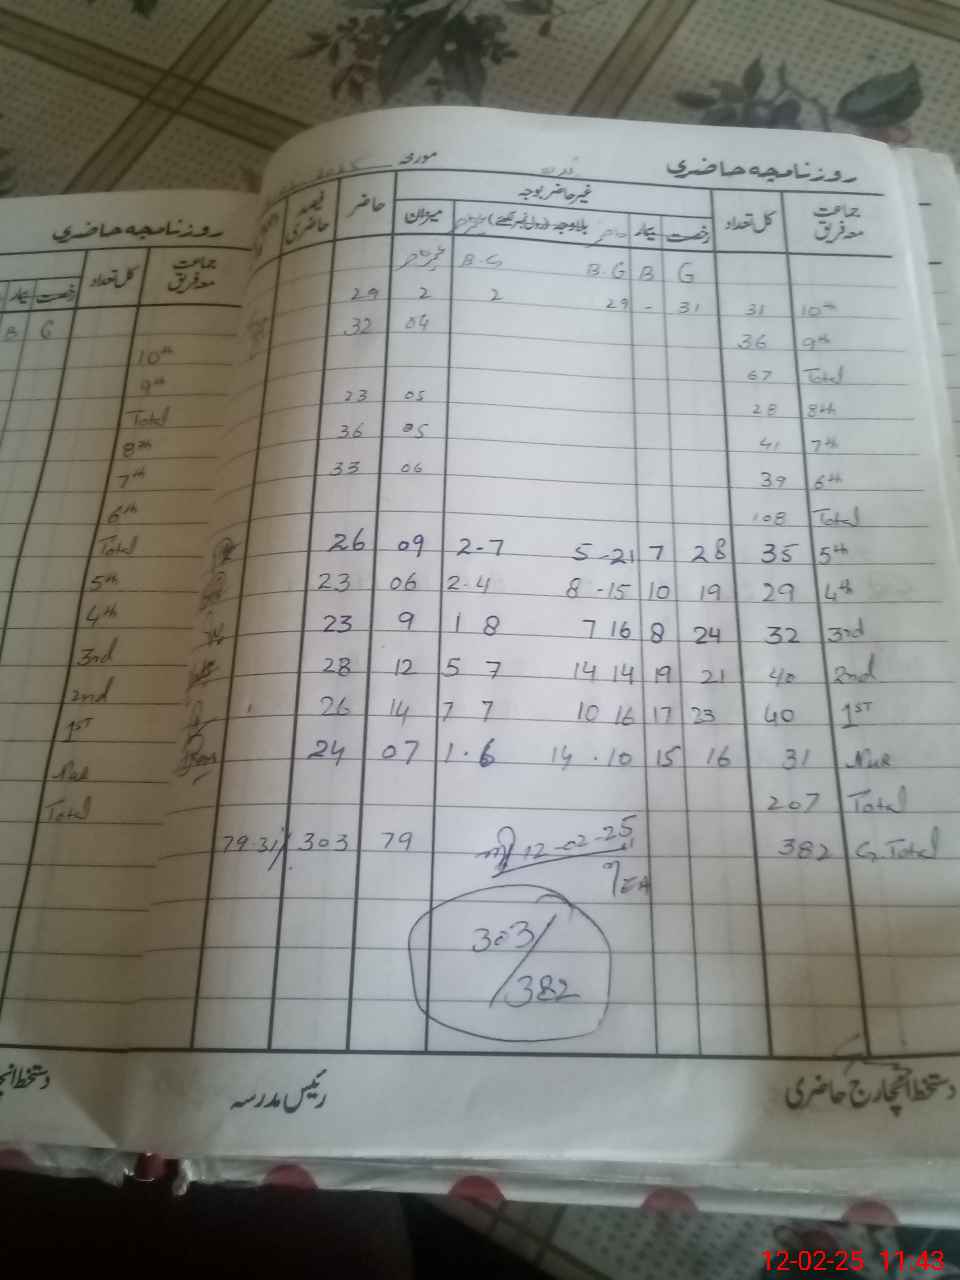 روزنامچہ حاضری مورخہ
جماعت معہ فریق کل تعداد غیر حاضر بوجہ حاضر فیصد حاضری
رخصت بیمار بلاوجہ (رول نمبر لکھیے) میزان
G B B.G B.G غیر حاضر
10th 31 31 - 29 2 2 29
9th 36 04 32
Total 67
8th 28 05 23
7th 41 05 36
6th 39 06 33
Total 108
5th 35 28 7 5-21 2-7 09 26
4th 29 19 10 8-15 2-4 06 23
3rd 32 24 8 7 16 1 8 9 23
2nd 40 21 19 14 14 5 7 12 28
1ST 40 23 17 10 16 7 7 14 26
Nur 31 16 15 14.10 1.6 07 24
Total 207
G. Total 382 79 303 79.31%
12-02-25
303/382
دستخط انچارج حاضری رئیس مدرسہ
روزنامچہ حاضری
جماعت معہ فریق کل تعداد رخصت بیمار
G B
10th
9th
Total
8th
7th
6th
Total
5th
4th
3rd
2nd
1ST
Nur
Total
12-02-25 11:43